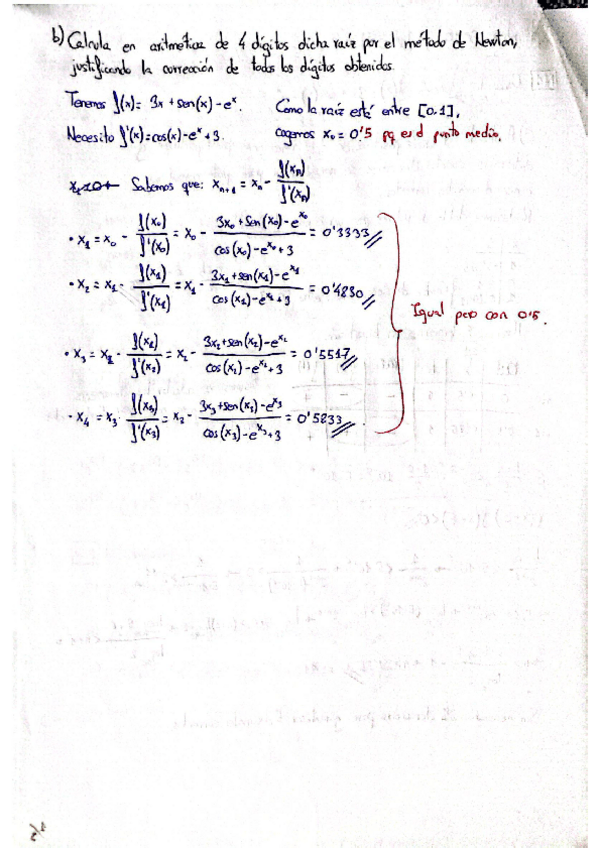 b) Calcula en aritmética de 4 dígitos dicha raíz por el método de Newton,
justificando la corrección de todos los dígitos obtenidos.
Tenemos f(x) = 3x + sen(x) - e^x. Como la raíz está entre [0,1],
Necesito f'(x) = cos(x) - e^x + 3. cogemos x₀ = 0'5 pq es el punto medio.
Sabemos que: x_{n+1} = x_n - f(x_n)/f'(x_n)
• x₁ = x₀ - f(x₀)/f'(x₀) = x₀ - (3x₀ + sen(x₀) - e^{x₀})/(cos(x₀) - e^{x₀} + 3) = 0'3333
• x₂ = x₁ - f(x₁)/f'(x₁) = x₁ - (3x₁ + sen(x₁) - e^{x₁})/(cos(x₁) - e^{x₁} + 3) = 0'4830
Igual pero con 0'5.
• x₃ = x₂ - f(x₂)/f'(x₂) = x₂ - (3x₂ + sen(x₂) - e^{x₂})/(cos(x₂) - e^{x₂} + 3) = 0'5517
• x₄ = x₃ - f(x₃)/f'(x₃) = x₃ - (3x₃ + sen(x₃) - e^{x₃})/(cos(x₃) - e^{x₃} + 3) = 0'5833